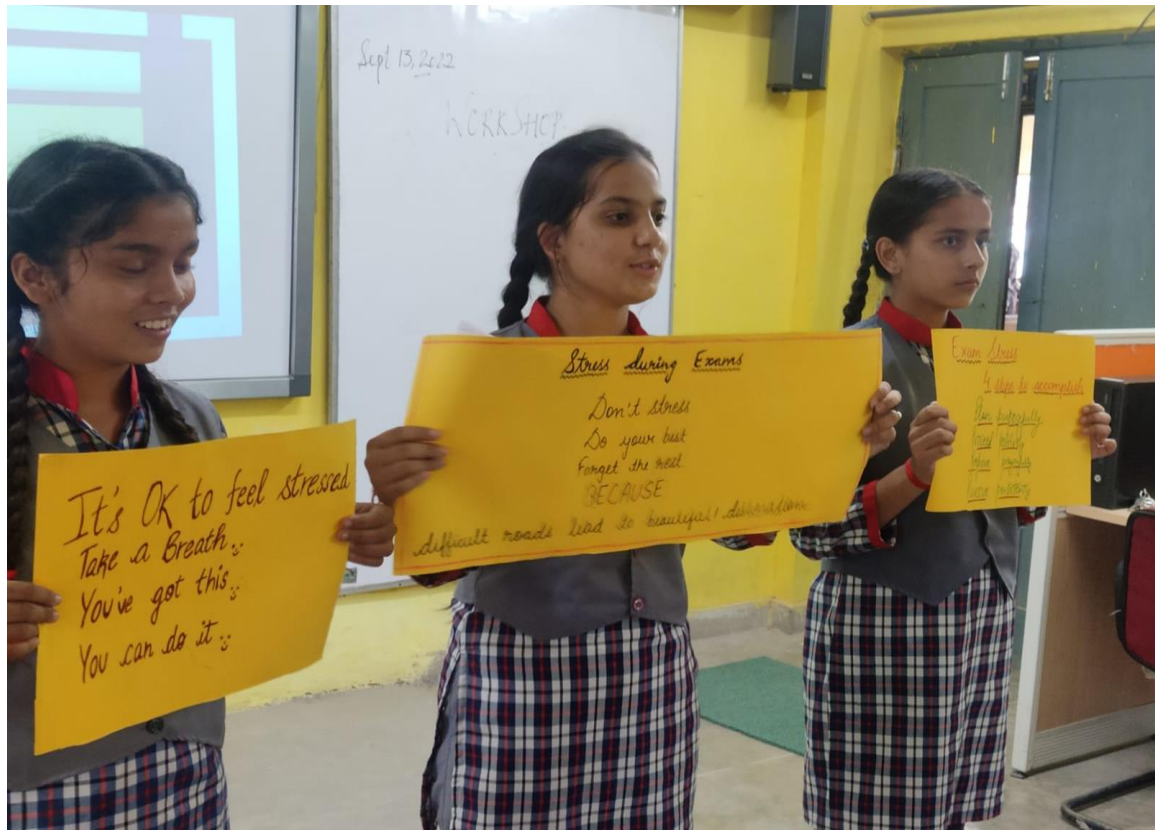 Sept 13, 2022
WORKSHOP
It's OK to feel stressed
Take a Breath..
You've got this..
You can do it..
Stress during Exams
Don't stress
Do your best
Forget the rest
BECAUSE
difficult roads lead to beautiful destination
Exam Stress
4 steps to accomplish
Plan purposefully